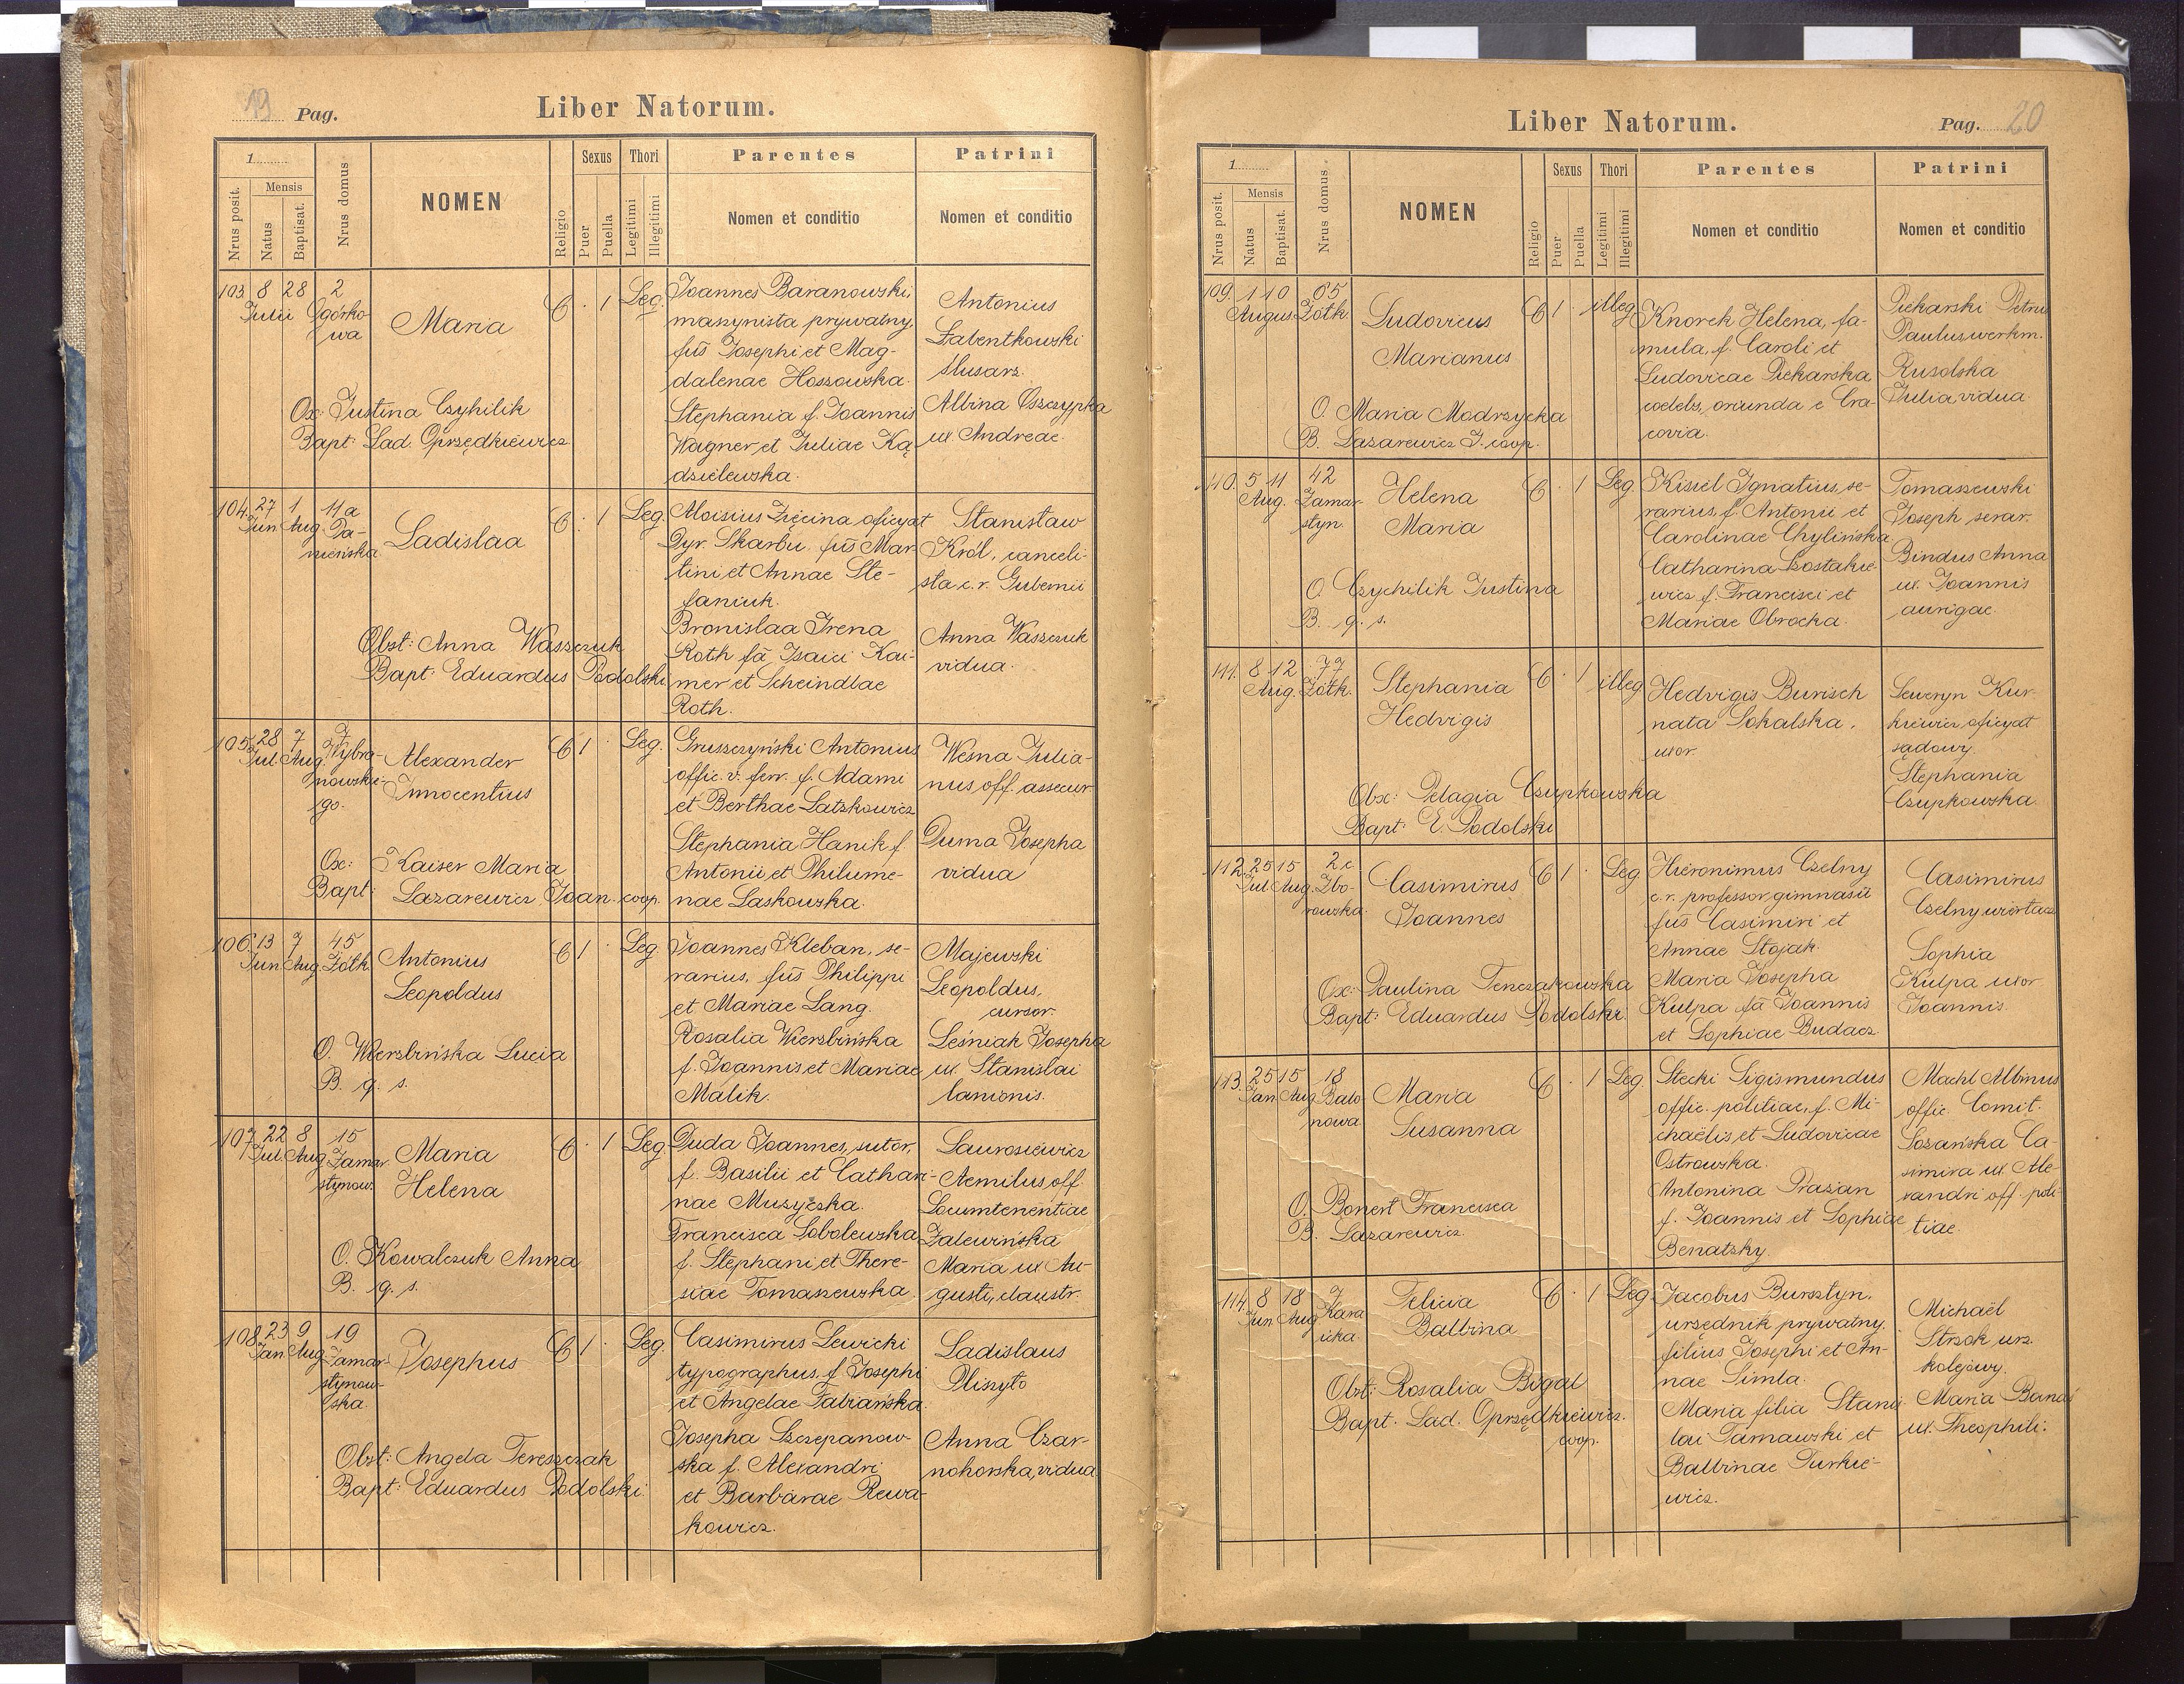 19 Pag.
Liber Natorum.
1
Nrus posit.
Mensis
Natus
Baptisat.
Nrus domus
NOMEN
Religio
Sexus
Puer
Puella
Thori
Legitimi
Illegitimi
Parentes
Nomen et conditio
Patrini
Nomen et conditio
103 8 28 2
Julii Ogórko
wa
Maria
C · 1 Leg.
Joannes Baranowski,
maszynista prywatny,
fus Josephi et Mag-
dalenae Hoszowska.
Stephania f. Joannis
Wagner et Juliae Ką
dzielewska.
Antonius
Labentkowski
ślusarz.
Albina Oszczypka
ux. Andreae.
Ox: Justina Czyhilik
Bapt: Lad. Oprzędkiewicz
104. 27 1 11a
Jun Aug Pa-
nieńska
Ladislaa
C · 1 Leg.
Aloisius Zięcina oficyał
Dyr. Skarbu. fus Mar
tini et Annae Ste-
faniuk.
Bronislaa Irena
Roth fa Isaici Kai-
mer et Scheindlae
Roth.
Stanisław
Król, canceli-
sta c. r. Gubernii
Anna Waszczuk
vidua.
Obst: Anna Waszczuk
Bapt: Eduardus Podolski
105. 28 7 7
Jul. Aug. Wybra-
nowskie-
go.
Alexander
Innocentius
C 1 · Leg.
Gruszczyński Antonius
offic. v. ferr. f. Adami
et Berthae Latzkowicz
Stephania Hanik f.
Antonii et Philume-
nae Laskowska.
Wesna Julia-
nus off. assecur
Duma Josepha
vidua
Ox: Kaiser Maria
Bapt: Lazarewicz Joan. coop.
106. 13 7 45
Jun Aug. Żółk.
Antonius
Leopoldus
C 1 · Leg.
Joannes Kleban, se-
rarius, fus Philippi
et Mariae Lang.
Rosalia Wierzbińska
f. Joannis et Mariae
Malik.
Majewski
Leopoldus,
cursor.
Leśniak Josepha
ux. Stanislai
lanionis.
O. Wierzbińska Lucia
B. q. s.
107. 22 8 15
Jul. Aug. Zamar
stynow.
Maria
Helena
C · 1 Leg.
Duda Joannes, sutor,
f. Basilii et Cathari-
nae Muzyczka.
Francisca Sobolewska
f. Stephani et There-
siae Tomaszewska.
Laurosiewicz
Aemilus off.
Locumtenentiae
Zalewińska
Maria ux. Au-
gusti, claustr.
O. Kowalczuk Anna
B. q. s.
108. 23 9 19
Jan. Aug. Zamar-
stynow-
ska.
Josephus
C 1 · Leg.
Casimirus Lewicki
typographus, f. Josephi
et Angelae Fabiańska.
Josepha Szczepanow-
ska f. Alexandri
et Barbarae Rewa-
kowicz.
Ladislaus
Pliszyto
Anna Czar-
nohorska, vidua
Obst: Angela Tereszczak
Bapt: Eduardus Podolski.
Liber Natorum.
Pag. 20
1
Nrus posit.
Mensis
Natus
Baptisat.
Nrus domus
NOMEN
Religio
Sexus
Puer
Puella
Thori
Legitimi
Illegitimi
Parentes
Nomen et conditio
Patrini
Nomen et conditio
109. 1 10 65
Augus. Żółk.
Ludovicus
Marianus
C 1 · illeg
Knorek Helena, fa-
mula, f. Caroli et
Ludovicae Piekarska
coelebs, oriunda e Cra-
covia.
Piekarski Petrus
Paulus werkm.
Rusolska
Julia, vidua.
O. Maria Modrzycka
B. Lazarewicz J. coop.
110. 5 11 42
Aug. Zamar
styn.
Helena
Maria
C · 1 Leg.
Kisiel Ignatius, se-
rarius, f. Antonii et
Carolinae Chylińska
Catharina Szostakie-
wicz f. Francisci et
Mariae Obrocka.
Tomaszewski
Joseph serar.
Bindus Anna
ux. Joannis
aurigae.
O. Czychilik Justina
B. q. s.
111. 8 12 77
Aug. Żółk.
Stephania
Hedvigis
C · 1 illeg
Hedvigis Burisch
nata Sokalska,
uxor.
Seweryn Kur
kiewicz oficyał
sądowy.
Stephania
Czupkowska.
Obx: Pelagia Czupkowska
Bapt: E. Podolski
112. 25 15 2c
Jul Aug. Zbo-
rowska.
Casimirus
Joannes
C 1 · Leg
Hieronimus Czelny
c. r. professor gimnasii
fus Casimiri et
Annae Stojak.
Maria Josepha
Kulpa fa Joannis
et Sophiae Budacz
Casimirus
Czelny
Sophia
Kulpa uxor
Joannis.
Ox: Paulina Tenczakowska
Bapt: Eduardus Podolski.
113. 25 15 18
Jan. Aug. Balo
nowa
Maria
Susanna
C · 1 Leg.
Stecki Sigismundus
offic. politiae, f. Mi-
chaëlis et Ludovicae
Ostrowska.
Antonina Prazan
f. Joannis et Sophiae
Benatzky.
Machl Albinus
offic. Comit.
Łozańska Ca-
simira ux. Ale-
xandri off. poli-
tiae.
O. Bonert Francisca
B. Lazarewicz.
114. 8 18 7
Jun Aug Kara
icka.
Felicia
Balbina
C · 1 Leg.
Jacobus Bursztyn,
urzędnik prywatny,
filius Josephi et An-
nae Simla.
Maria filia Stanis
lai Tarnawski et
Balbinae Turkie-
wicz.
Michaël
Strzok urz.
kolejowy.
Maria
ux. Theophili.
Obst: Rosalia Bigal
Bapt. Lad. Oprzędkiewicz.
coop.